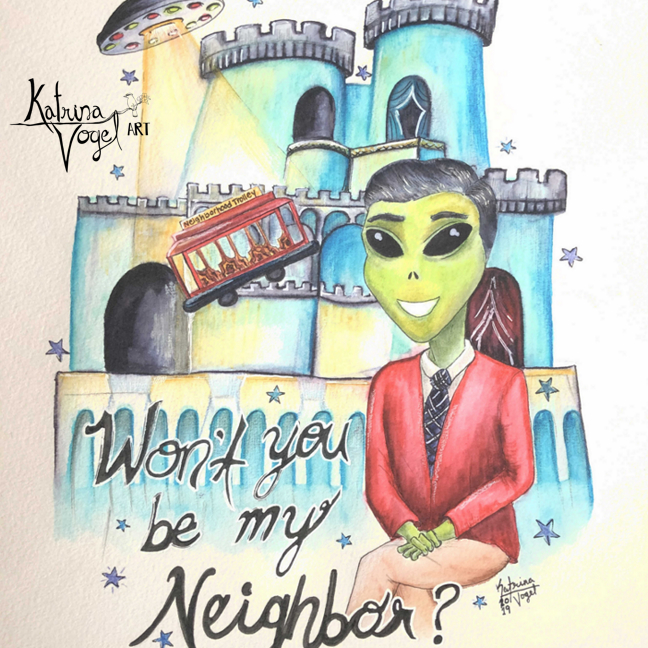 Katrina
Vogel ART
Neighborhood Trolley
Won't you
be my
Neighbor?
Katrina
Vogel
2019